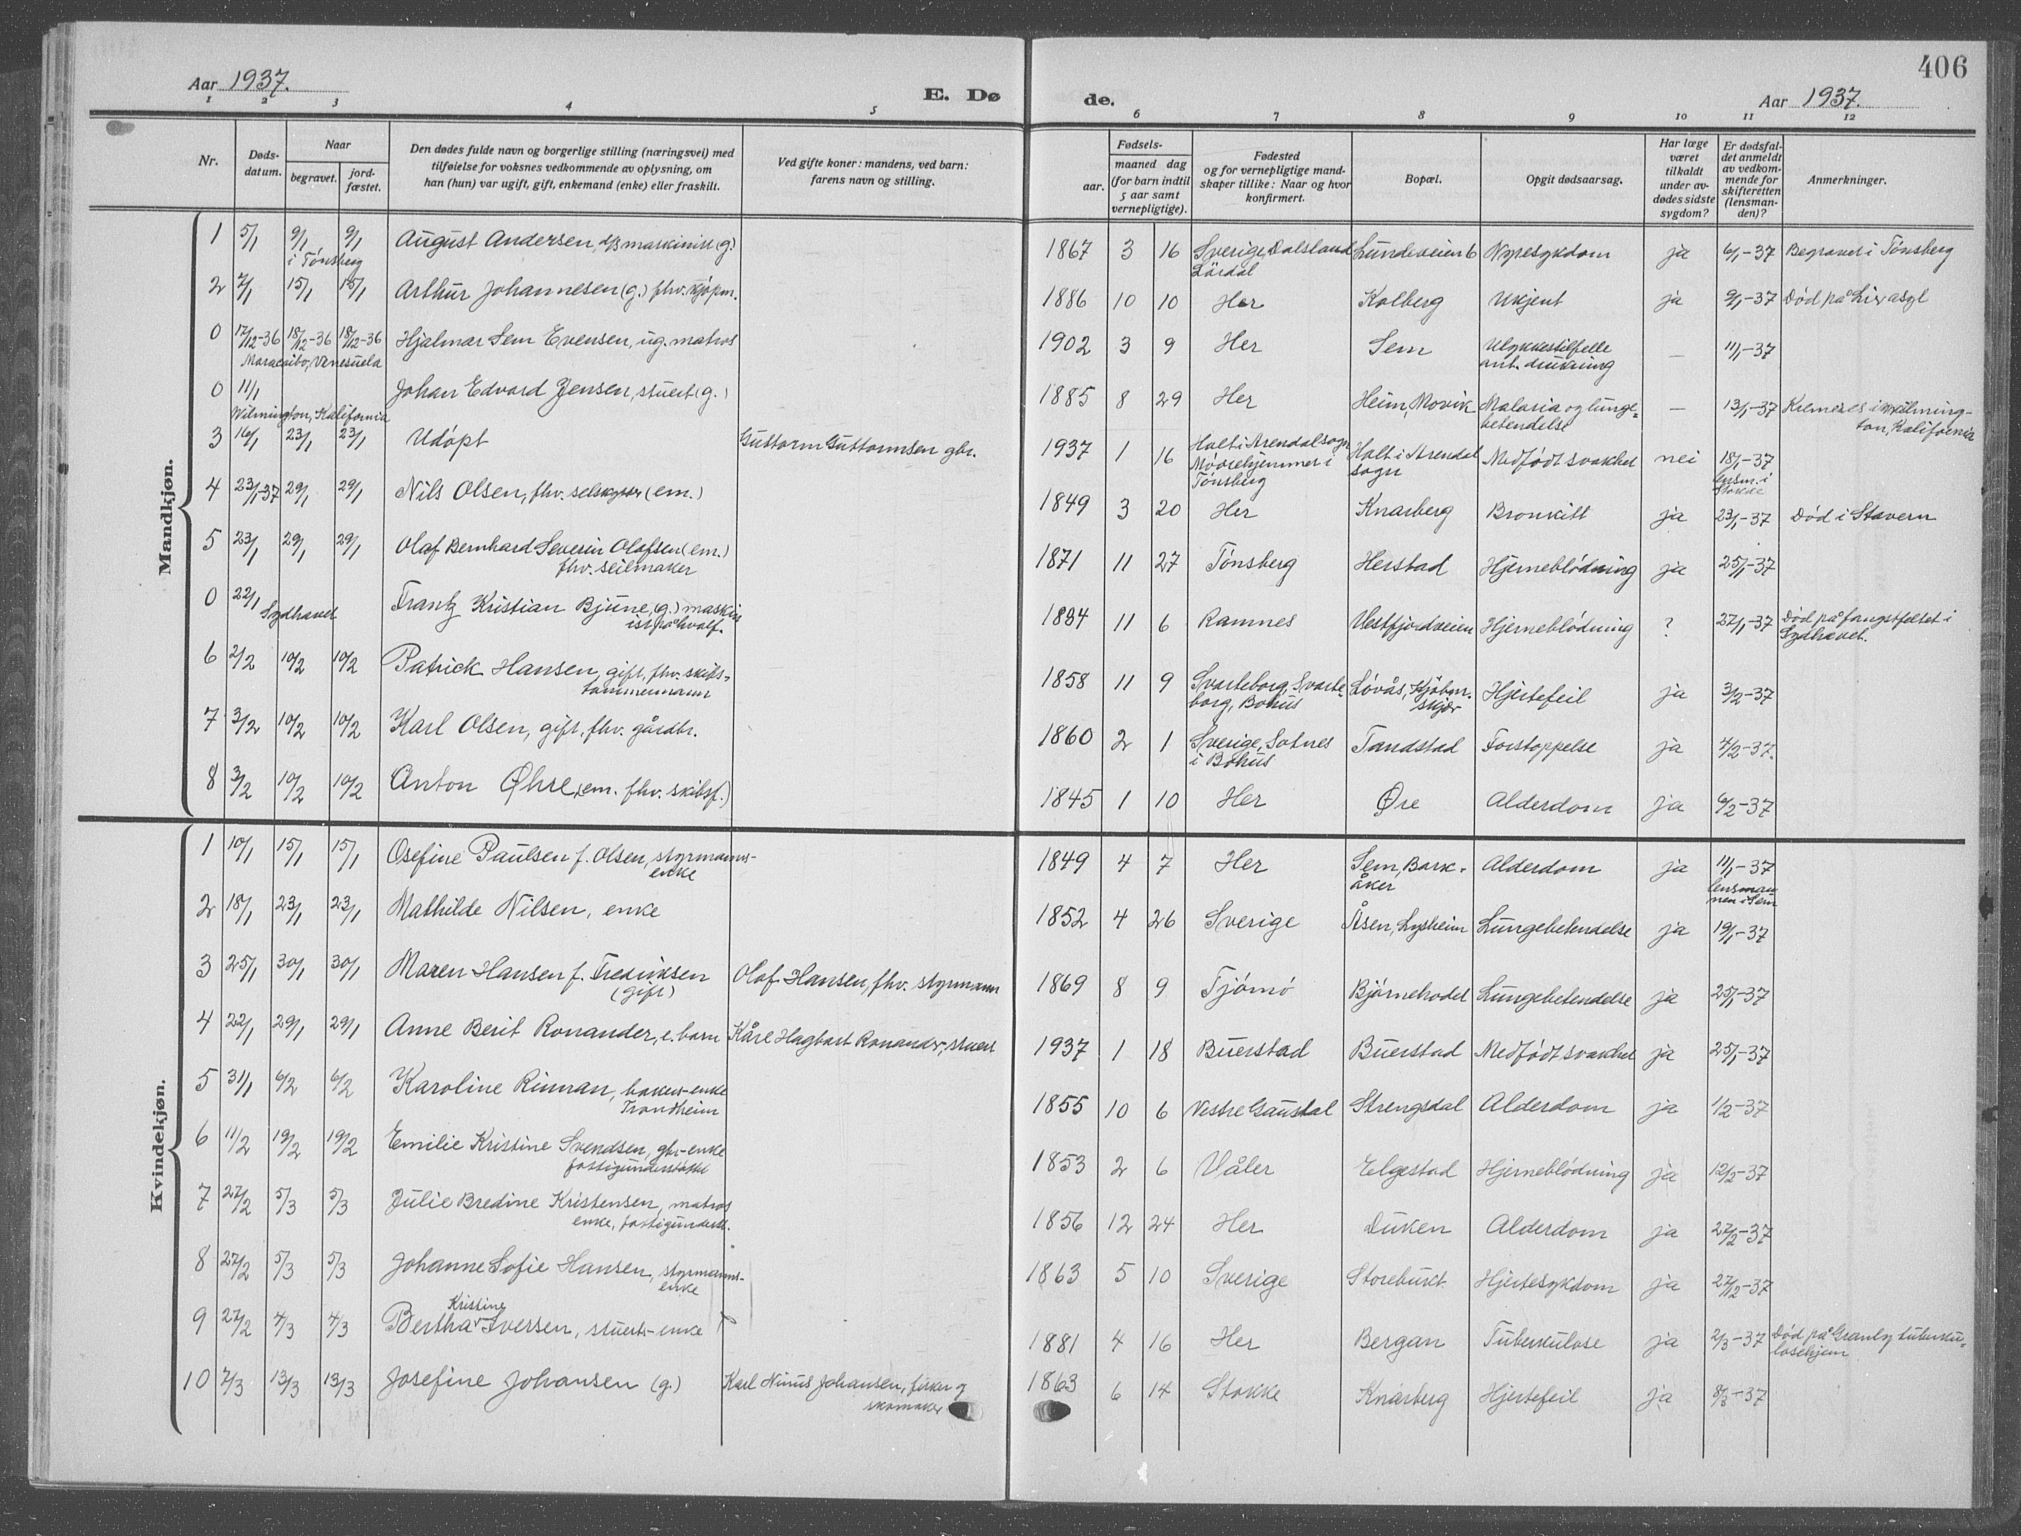 406
Aar 1937.
E. Dø
de.
Aar 1937.
1 2 3 4 5 6 7 8 9 10 11 12
Nr.
Døds-
datum.
Naar
begravet.
jord-
fæstet.
Den dødes fulde navn og borgerlige stilling (næringsvei) med
tilføielse for voksnes vedkommende av oplysning, om
han (hun) var ugift, gift, enkemand (enke) eller fraskilt.
Ved gifte koner: mandens, ved barn:
farens navn og stilling.
Fødsels-
aar.
maaned dag
(for barn indtil
5 aar samt
vernepligtige).
Fødested
og for vernepligtige mand-
skaper tillike: Naar og hvor
konfirmert.
Bopæl.
Opgit dødsaarsag.
Har læge
været
tilkaldt
under av-
dødes sidste
sygdom?
Er dødsfal-
det anmeldt
av vedkom-
mende for
skifteretten
(lensman-
den)?
Anmerkninger.
Mandkjøn.
1 5/1 9/1 9/1 August Andersen, d/s maskinist (g.) 1867 3 16 Sverige, Dalsland Lundeveien 6 Nyresykdom ja 6/1-37 Begravet i Tønsberg
i Tønsberg Lårdal
2 7/1 15/1 15/1 Arthur Johannesen (g.) fhv. kjøpm. 1886 10 10 Her Kolberg Ukjent ja 9/1-37 Død på Lier asyl
0 17/12-36 18/12-36 18/12-36 Hjalmar Sem Evensen, ug. matros 1902 3 9 Her Sem Ulykkestilfelle — 11/1-37
Maracaibo, Venesuela ant. drukning
0 11/1 Johan Edvard Jensen, stuert (g.) 1885 8 29 Her Heim, Movik Malaria og lunge= — 13/1-37 Kremeres i Wilming-
Wilmington, Kalifornia betendelse ton, Kalifornia
3 16/1 23/1 23/1 Udøpt Guttorm Guttormsen gbr. 1937 1 16 Holt i Arendal sogn Holt i Arendal Medfødt svakhet nei 18/1-37
Mødrehjemmet i sogn lensm. i
Tønsberg Stokke
4 23/1-37 29/1 29/1 Nils Olsen, fhv. (em.) 1849 3 20 Her Knarberg Bronkitt ja 23/1-37 Død i Stavern
5 23/1 29/1 29/1 Olaf Bernhard Severin Olafsen (em.) 1871 11 27 Tønsberg Herstad Hjerneblødning ja 25/1-37
fhv. seilmaker
0 22/1 Frantz Kristian Bjune, (g.) maskin 1884 11 6 Ramnes Vestfjordveien Hjerneblødning ? 27/1-37 Død på fangstfeltet i
Sydhavet ist på hvalf. Sydhavet.
6 2/2 10/2 10/2 Patrick Hansen, gift, fhv. skibs- 1858 11 9 Svarteborg, Svarte- Løvås, Kjøbm. Hjertefeil ja 3/2-37
tømmermann borg, Bohus skjær
7 3/2 10/2 10/2 Karl Olsen, gift, fhv. gårdbr. 1860 2 1 Sverige, Sotnes Tandstad Forstoppelse ja 4/2-37.
i Bohus
8 3/2 10/2 10/2 Anton Øhre, em. fhv. skibsf.) 1845 1 10 Her Øre Alderdom ja 6/2-37
Kvindekjøn.
1 10/1 15/1 15/1 Osefine Paulsen f. Olsen, styrmanns- 1849 4 7 Her Sem, Bark- Alderdom ja 11/1-37
enke åker lensman
nen i Sem
2 18/1 23/1 23/1 Mathilde Nilsen, enke 1852 4 26 Sverige Åsen, Lysheim Lungebetendelse ja 19/1-37
3 25/1 30/1 30/1 Maren Hansen f. Fredriksen Olaf Hansen, fhv. styrmann 1869 8 9 Tjømø Bjørnehodet Lungebetendelse ja 25/1-37
(gift)
4 22/1 29/1 29/1 Anne Berit Ronander, e. barn Kåre Hagbart Ronander, stuert 1937 1 18 Buerstad Buerstad Medfødt svakhet ja 25/1-37
5 31/1 6/2 6/2 Karoline Rinnan, bakers-enke 1855 10 6 Vestre Gausdal Strengsdal Alderdom ja 1/2-37
Trondheim
6 11/2 19/2 19/2 Emilie Kristine Svendsen, gbr-enke 1853 2 6 Våler Elgestad Hjerneblødning ja 12/2-37
fattigunderstøttet
7 27/2 5/3 5/3 Julie Bredine Kristensen, matros 1856 12 24 Her Duken Alderdom ja 27/2-37
enke, fattigunderst.
8 27/2 5/3 5/3 Johanne Sofie Hansen, styrmanns- 1863 5 10 Sverige Storebukt Hjertesykdom ja 27/12-37
enke
Kristine
9 27/2 4/3 4/3 Bertha Iversen, stuerts-enke 1881 4 16 Her Bergan Tuberkulose ja 2/3-37 Død på Granly tuberku-
losehjem
10 7/3 13/3 13/3 Josefine Johansen (g.) Karl Ninus Johansen, fisker og 1863 6 14 Stokke Knarberg Hjertefeil ja 8/3-37
skomaker